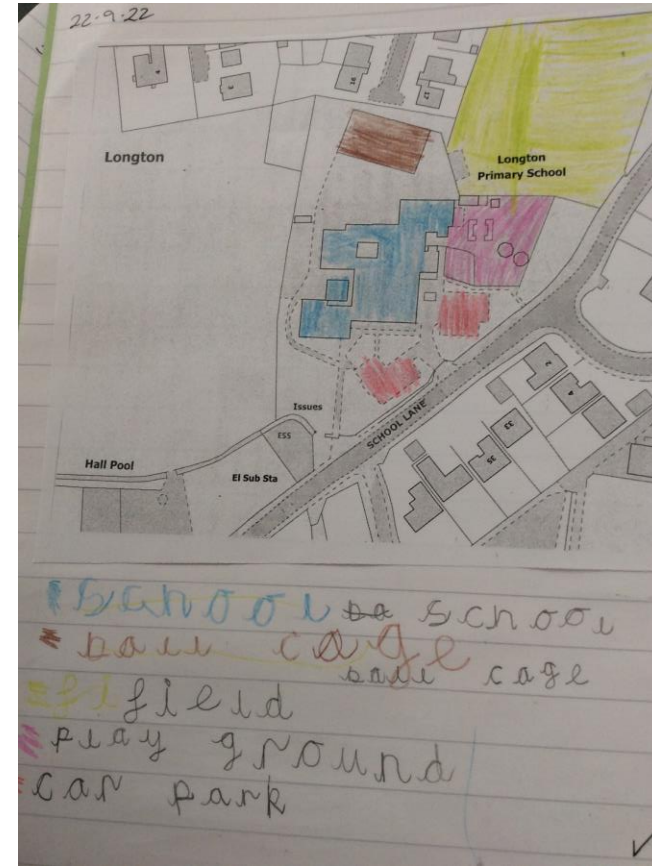 22.9.22
Longton
Longton
Primary School
Issues
ESS
SCHOOL LANE
Hall Pool
El Sub Sta
33
35
school school
ball cage
ball cage
field
play ground
car park